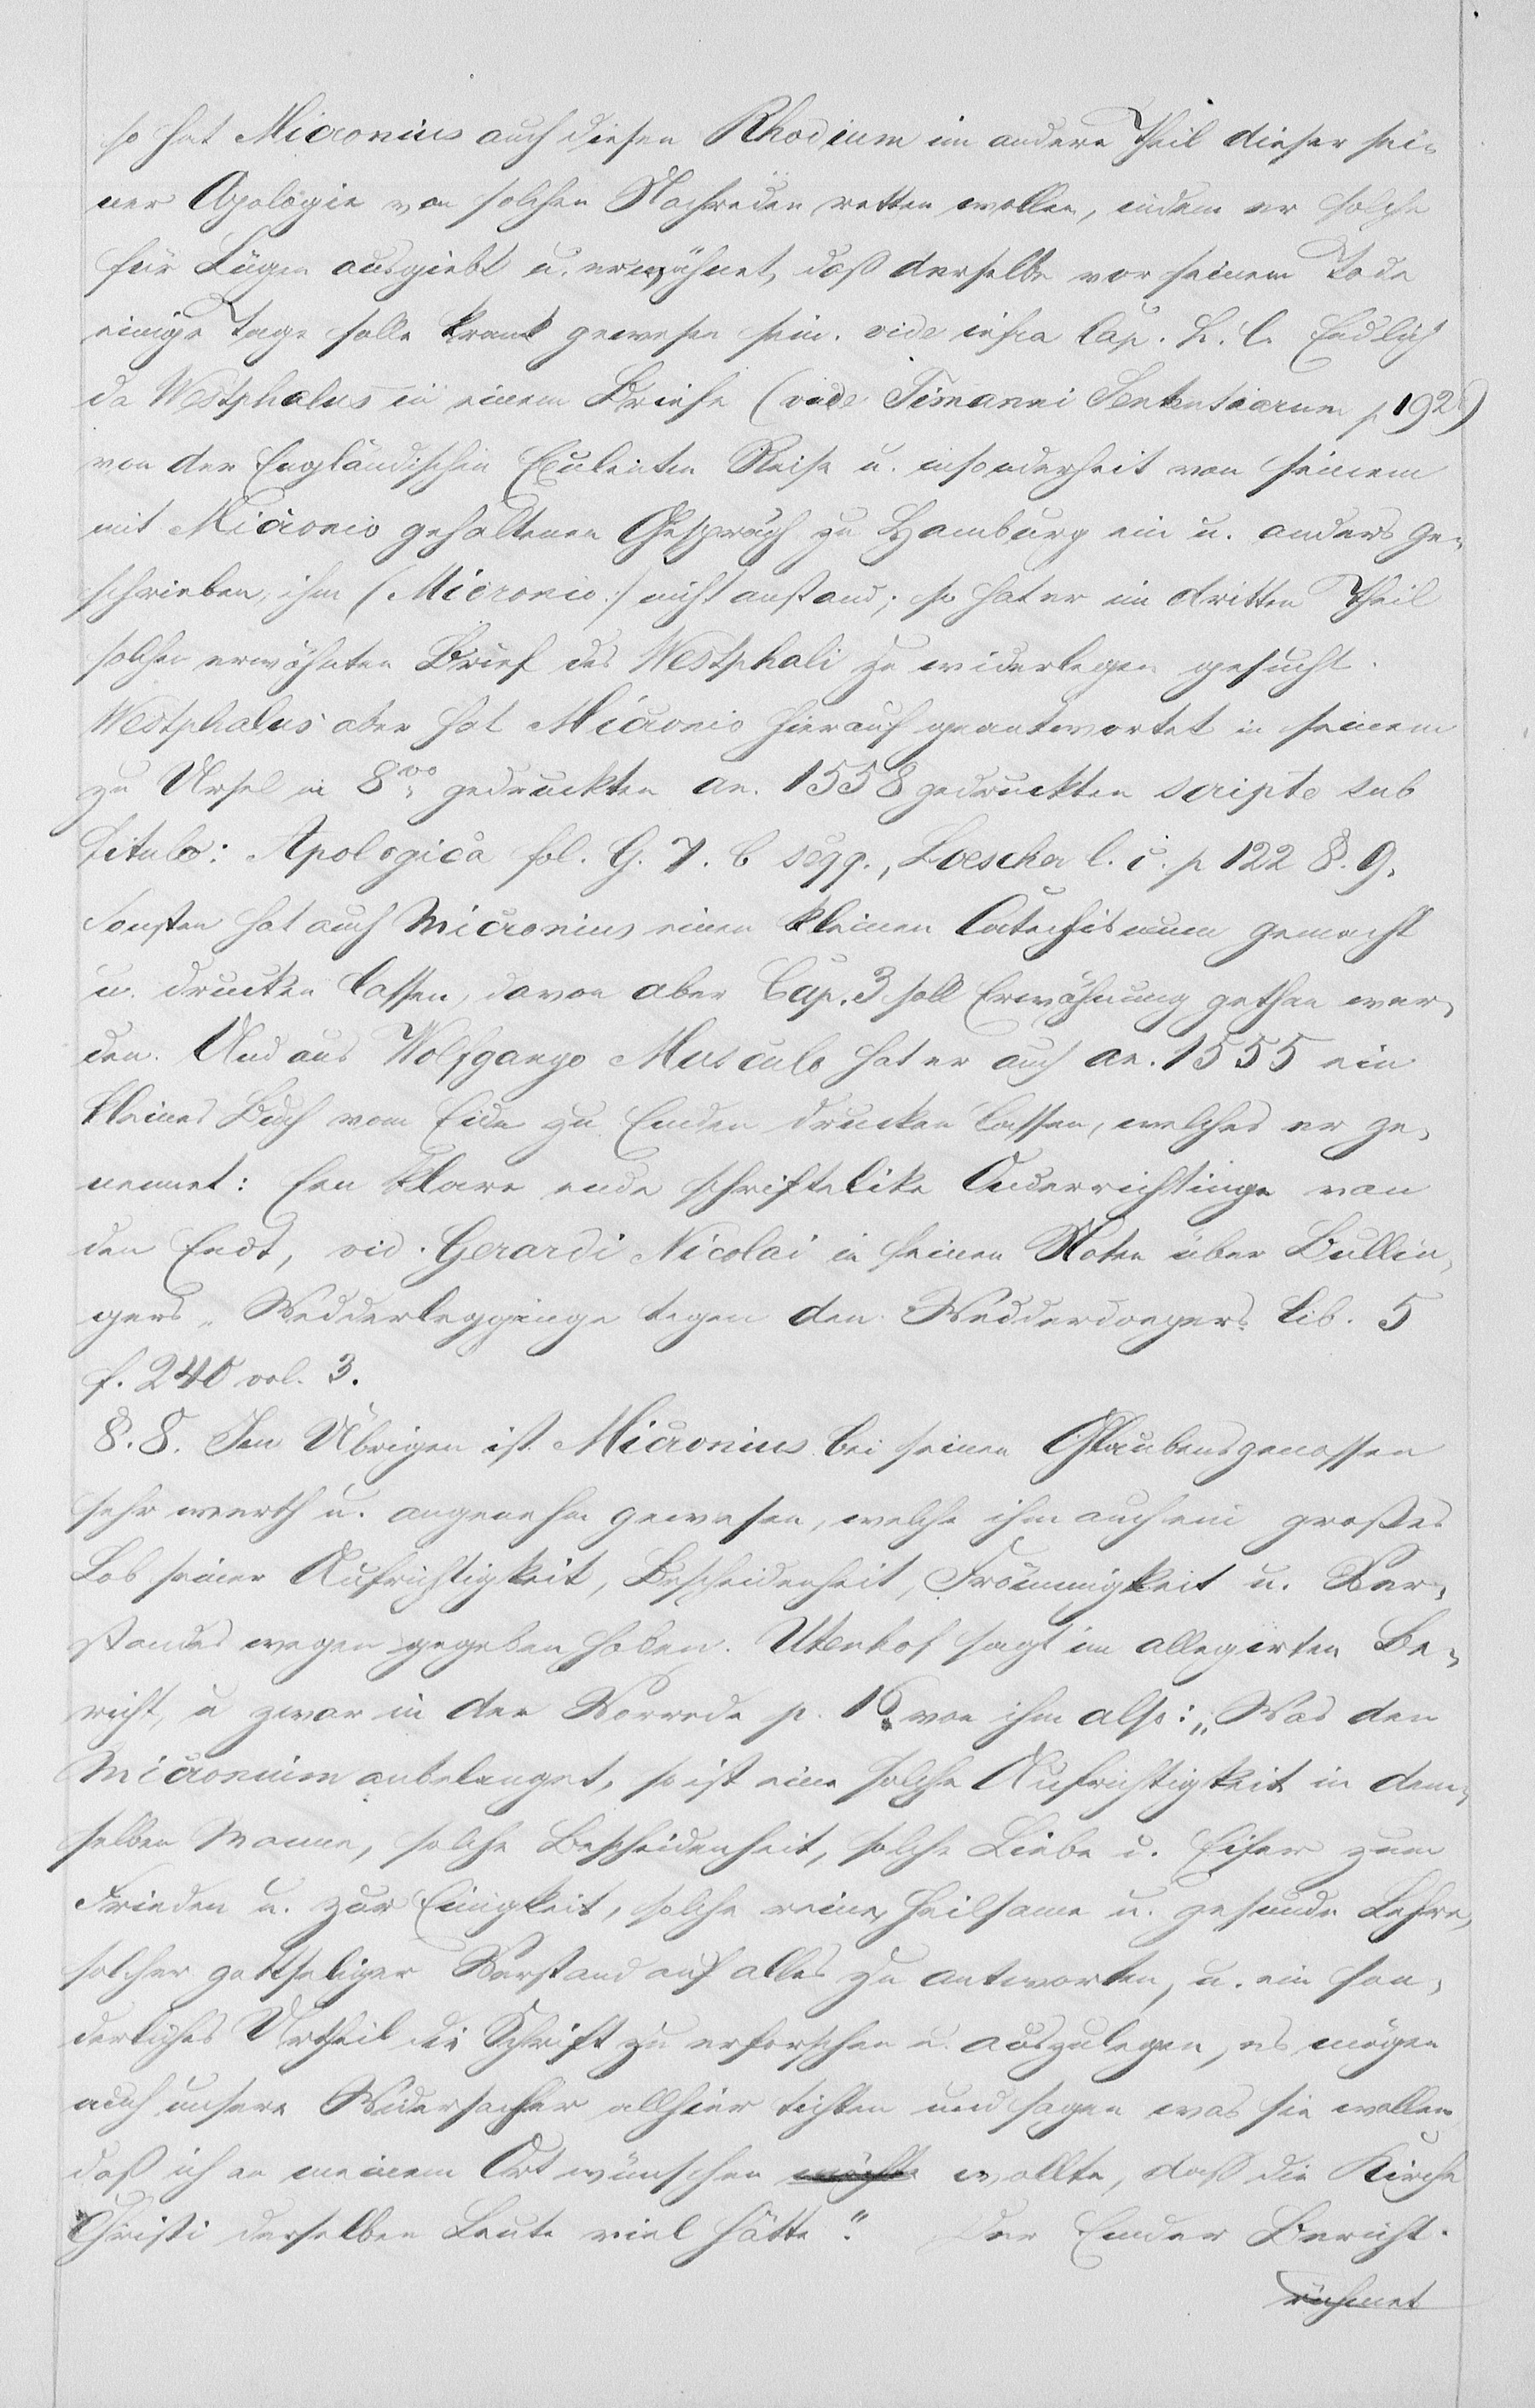 so hat Micronius auch diesen Rhodium im andern Theil dieser sei-
ner Apologie von solchen Nachreden retten wollen, indem er solche
für Lügen ausgiebt u. erwähnet, daß derselbe vor seinem Tode
einige Tage solle krank gewesen sein. vide infra Cap. h. l. Endlich
da Westphalus in einem Briefe (vide Timanni Sententiarum p 192)
von der Engländischen Exulenten Reise u. insonderheit von seinem
mit Micronio gehaltenen Gespräch zu Hamburg ein u. anders ge-
schrieben, ihm (Micronio:) nicht anstand; so hat er im dritten Theil
solchen erwähnten Brief des Westphali zu widerlegen gesucht.
Westphalus aber hat Micronio hierauf geantwortet in seinem
zu Ursel in 8vo gedruckten an. 1558 gedruckten scripto sub
titulo: Apologica fol. G. 7. b seqq., Loescher l. c. p 122 §. 9.
Sonsten hat auch Micronius einen kleinen Catechismum gemacht
u. drucken lassen, davon aber Cap. 3 soll Erwähnung gethan wer-
den. Und aus Wolfgango Musculo hat er auch an. 1555 ein
kleines Buch vom Eide zu Emden drucken lassen, welches er ge-
nennet: Een klare ende schriftelike Onderrichtinge van
den Eedt, vid. Gerardi Nicolai in seinen Noten über Bullin-
gers Wedderlegginge tegen den Wedderdoepers Lib. 5
f. 240 vol. 3.
§. 8. Im Übrigen ist Micronius bei seinen Glaubensgenossen
sehr werth u. angenehm gewesen, welche ihm auch ein großes
Lob seiner Aufrichtigkeit, Bescheidenheit, Frömmigkeit u. Ver-
standes wegen gegeben haben. Utenhof sagt im allegirten Be-
richt, u zwar in der Vorrede p. 16 von ihm also: „Was den
Micronium anbelanget, so ist eine solche Aufrichtigkeit in dem-
selben Manne, solche Bescheidenheit, solche Liebe u. Eifer zum
Frieden u. zur Einigkeit, solche reine, heilsame u. gesunde Lehre,
solcher gottseliger Verstand auf alles zu antworten, u. ein son-
derliches Urtheil die Schrift zu erforschen u. auszulegen, es mögen
auch unsere Widersacher allhier tichten und sagen was sie wollen
daß ich an meinem Ort wünschen möchte wollte, daß die Kirche
Christi derselben Leute viel hätte." Der Emder Bericht
rühmet